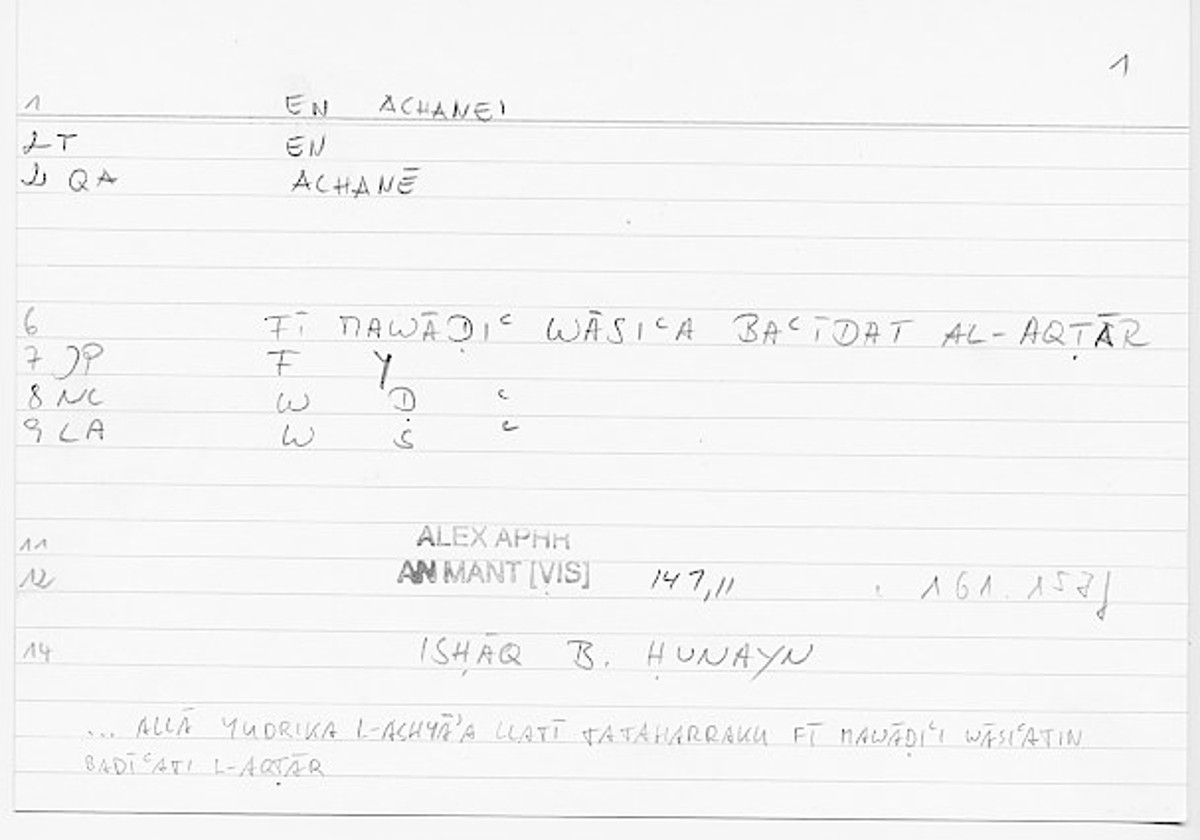 1
1 EN ACHANEI
2 T EN
2 QA ACHANĒ
6 FĪ MAWĀḌIᶜ WĀSIᶜA BAᶜĪDAT AL-AQṬĀR
7 JP F Y
8 NC W Ḍ ᶜ
9 LA W S ᶜ
11 ALEX APHR
12 AN MANT [VIS] 147,11 . 161.157f
14 ISḤĀQ B. ḤUNAYN
... ALLĀ YUDRIKA L-ACHYĀ'A LLATĪ TATAHARRAKU FĪ MAWĀḌIᶜI WĀSIᶜATIN
BADĪᶜATI L-AQṬĀR